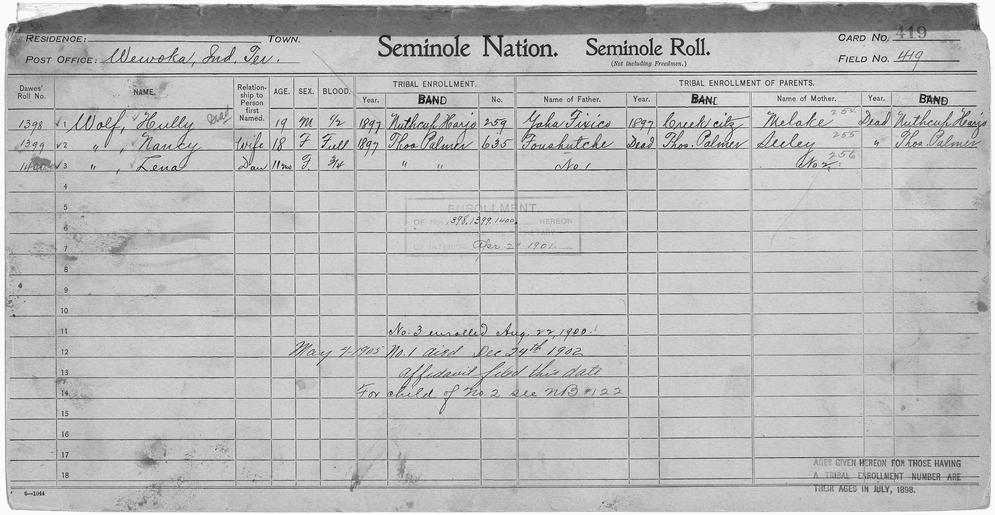 RESIDENCE: TOWN. Seminole Nation. Seminole Roll. CARD NO. 419
(Not including Freedmen.)
POST OFFICE: Wewoka, Ind. Ter. FIELD NO. 419
Dawes' Roll No. NAME. Relationship to Person first Named. AGE. SEX. BLOOD. TRIBAL ENROLLMENT. TRIBAL ENROLLMENT OF PARENTS.
Year. BAND No. Name of Father. Year. BAND Name of Mother. Year. BAND
1398 1 Wolf, Hully Dead 19 M 1/2 1897 Nuthcup Harjo 259 Yaha Fixico 1897 Creek city Melake 254 Dead Nuthcup Harjo
1399 2 " , Nancy Wife 18 F Full 1897 Thos Palmer 635 Foushutche Dead Thos. Palmer Seeley 255 " Thos. Palmer
1400 3 " , Lena Dau 11mo F. 3/4 " " No 1 No 2. 256
4
5
ENROLLMENT
6
OF NOS. 1398, 1399, 1400 HEREON
7
OF INTERIOR Apr. 2 1901.
8
9
10
11 No. 3 enrolled Aug. 22, 1900.
12 May 4-1905 No. 1 died Dec 24th 1902
13 Affidavit filed this date
14 For child of No. 2 see NB #122
15
16
17
18
AGES GIVEN HEREON FOR THOSE HAVING
A TRIBAL ENROLLMENT NUMBER ARE
THEIR AGES IN JULY, 1898.
6—1044